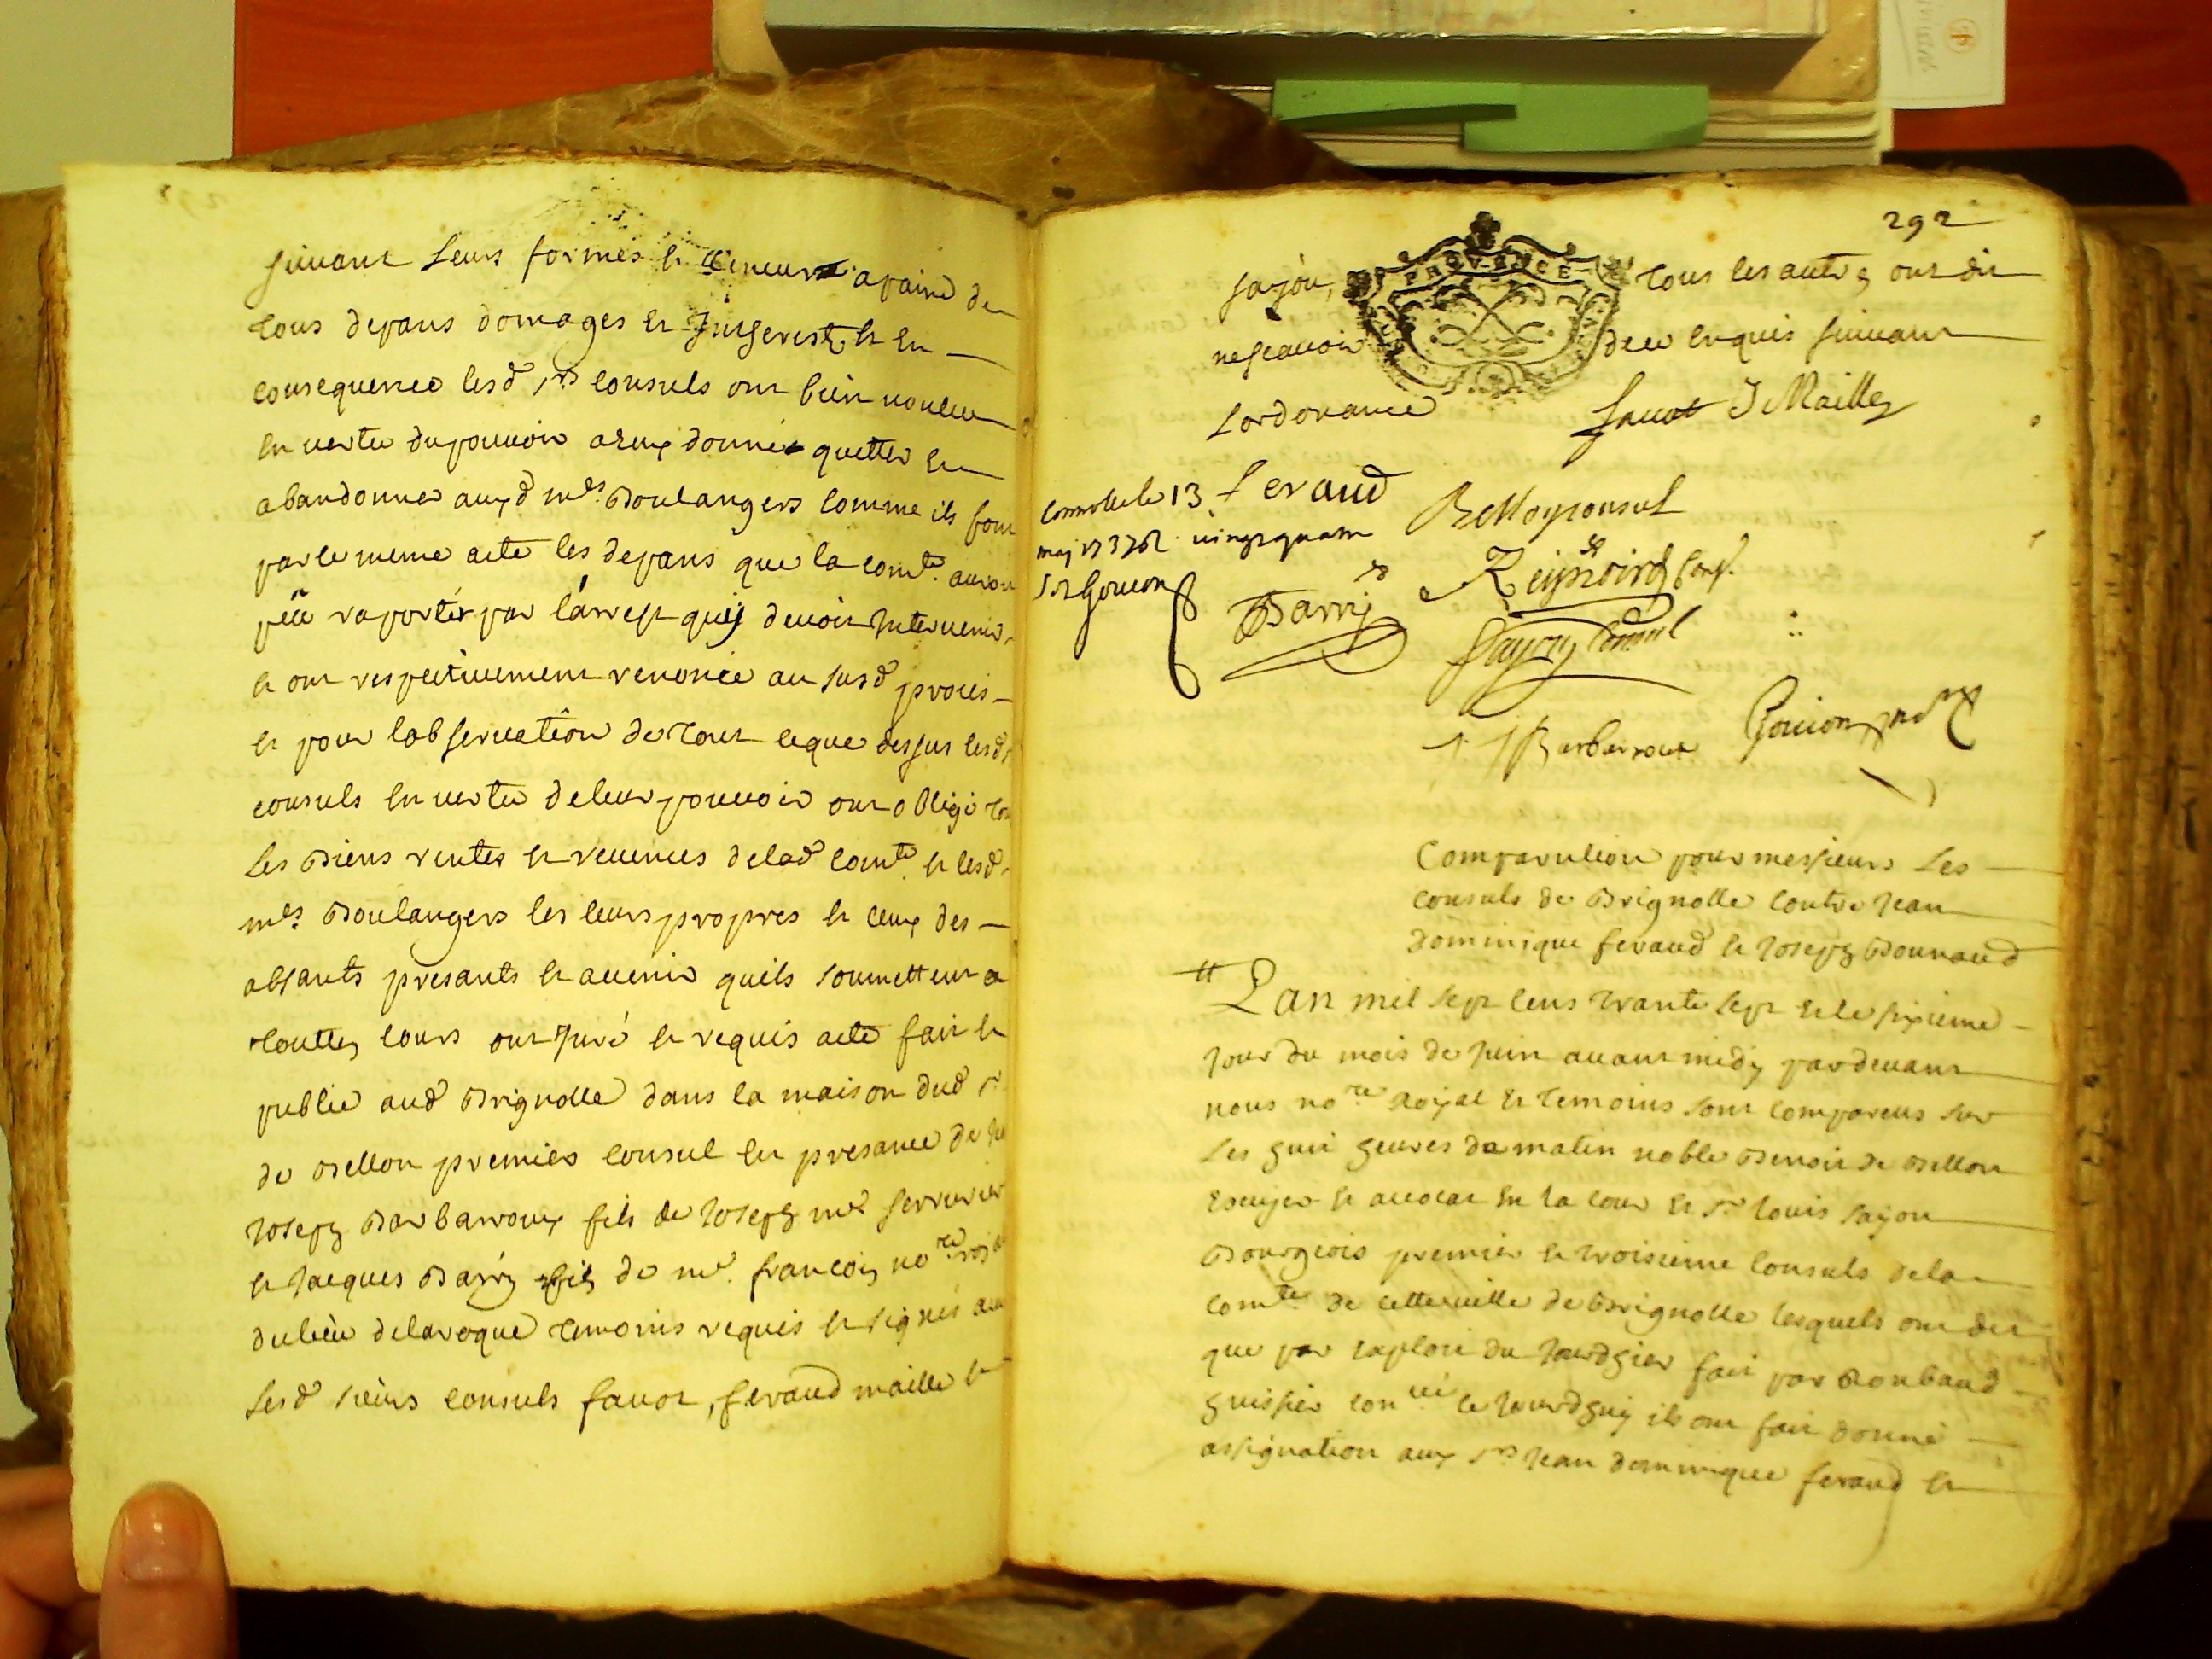 suivant leurs formes et teneurs a paine de
tous depans domages et Interests et en
consequence lesd srs consuls ont bien voulleu
en vertu du pouvoir a eux donné quitter et
abandonner auxd mes Boulangers comme ils font
par le meme acte les depans que la comté auroit
peu raporter par l'arrest quij devoit Intervenir
et ont respectivement renoncé au susd procés
et pour lobservation de tout ceque dessus lesd
consuls en vertu de leur pouvoir ont obligé
les Biens rentes et revenus delad comté et lesd
mes Boulangers les leurs propres et ceux des
absants presants et avenir quils soumettent a
touttes cours ont Juré et requis acte fait et
publié aud Brignolle dans la maison dud sr
de Bellon premier consul en presance de
Joseph Barbarroux fils de Joseph me serrurier
et Jacques Barry fils de me francois nore
du lieu de la roque temoins requis et signés
lesd sieurs consuls favot, feraud maille et
292
PROVENCE
fajon, tous les autres ont dit
ne scavoir dece enquis suivant
lordonance
favot J Maille
feraud
Controllé le 13
maj 1737
Gouion
Bellon consul
Reynoird cons.
Barry
fajon Consul
J Barbarroux
Gouion
Comparution pour messieurs Les
consuls de Brignolle contre Jean
Dominique feraud et Joseph Bounaud
Lan mil sept cens trante sept et le sixieme
jour du mois de Juin avant midy pardevant
nous nore Royal et temoins sont compareus sur
les huit heures du matin noble Benoit de Bellon
Escuyer et avocat en la cour et sr louis fajon
Bourgeois premier et troisieme consuls dela
comté de cette ville de Brignolle lesquels ont dit
que par exploit du Jourdhier fait par Roubaud
huissier le Jourdhuy ils ont fait donné
assignation aux srs Jean dominique feraud et